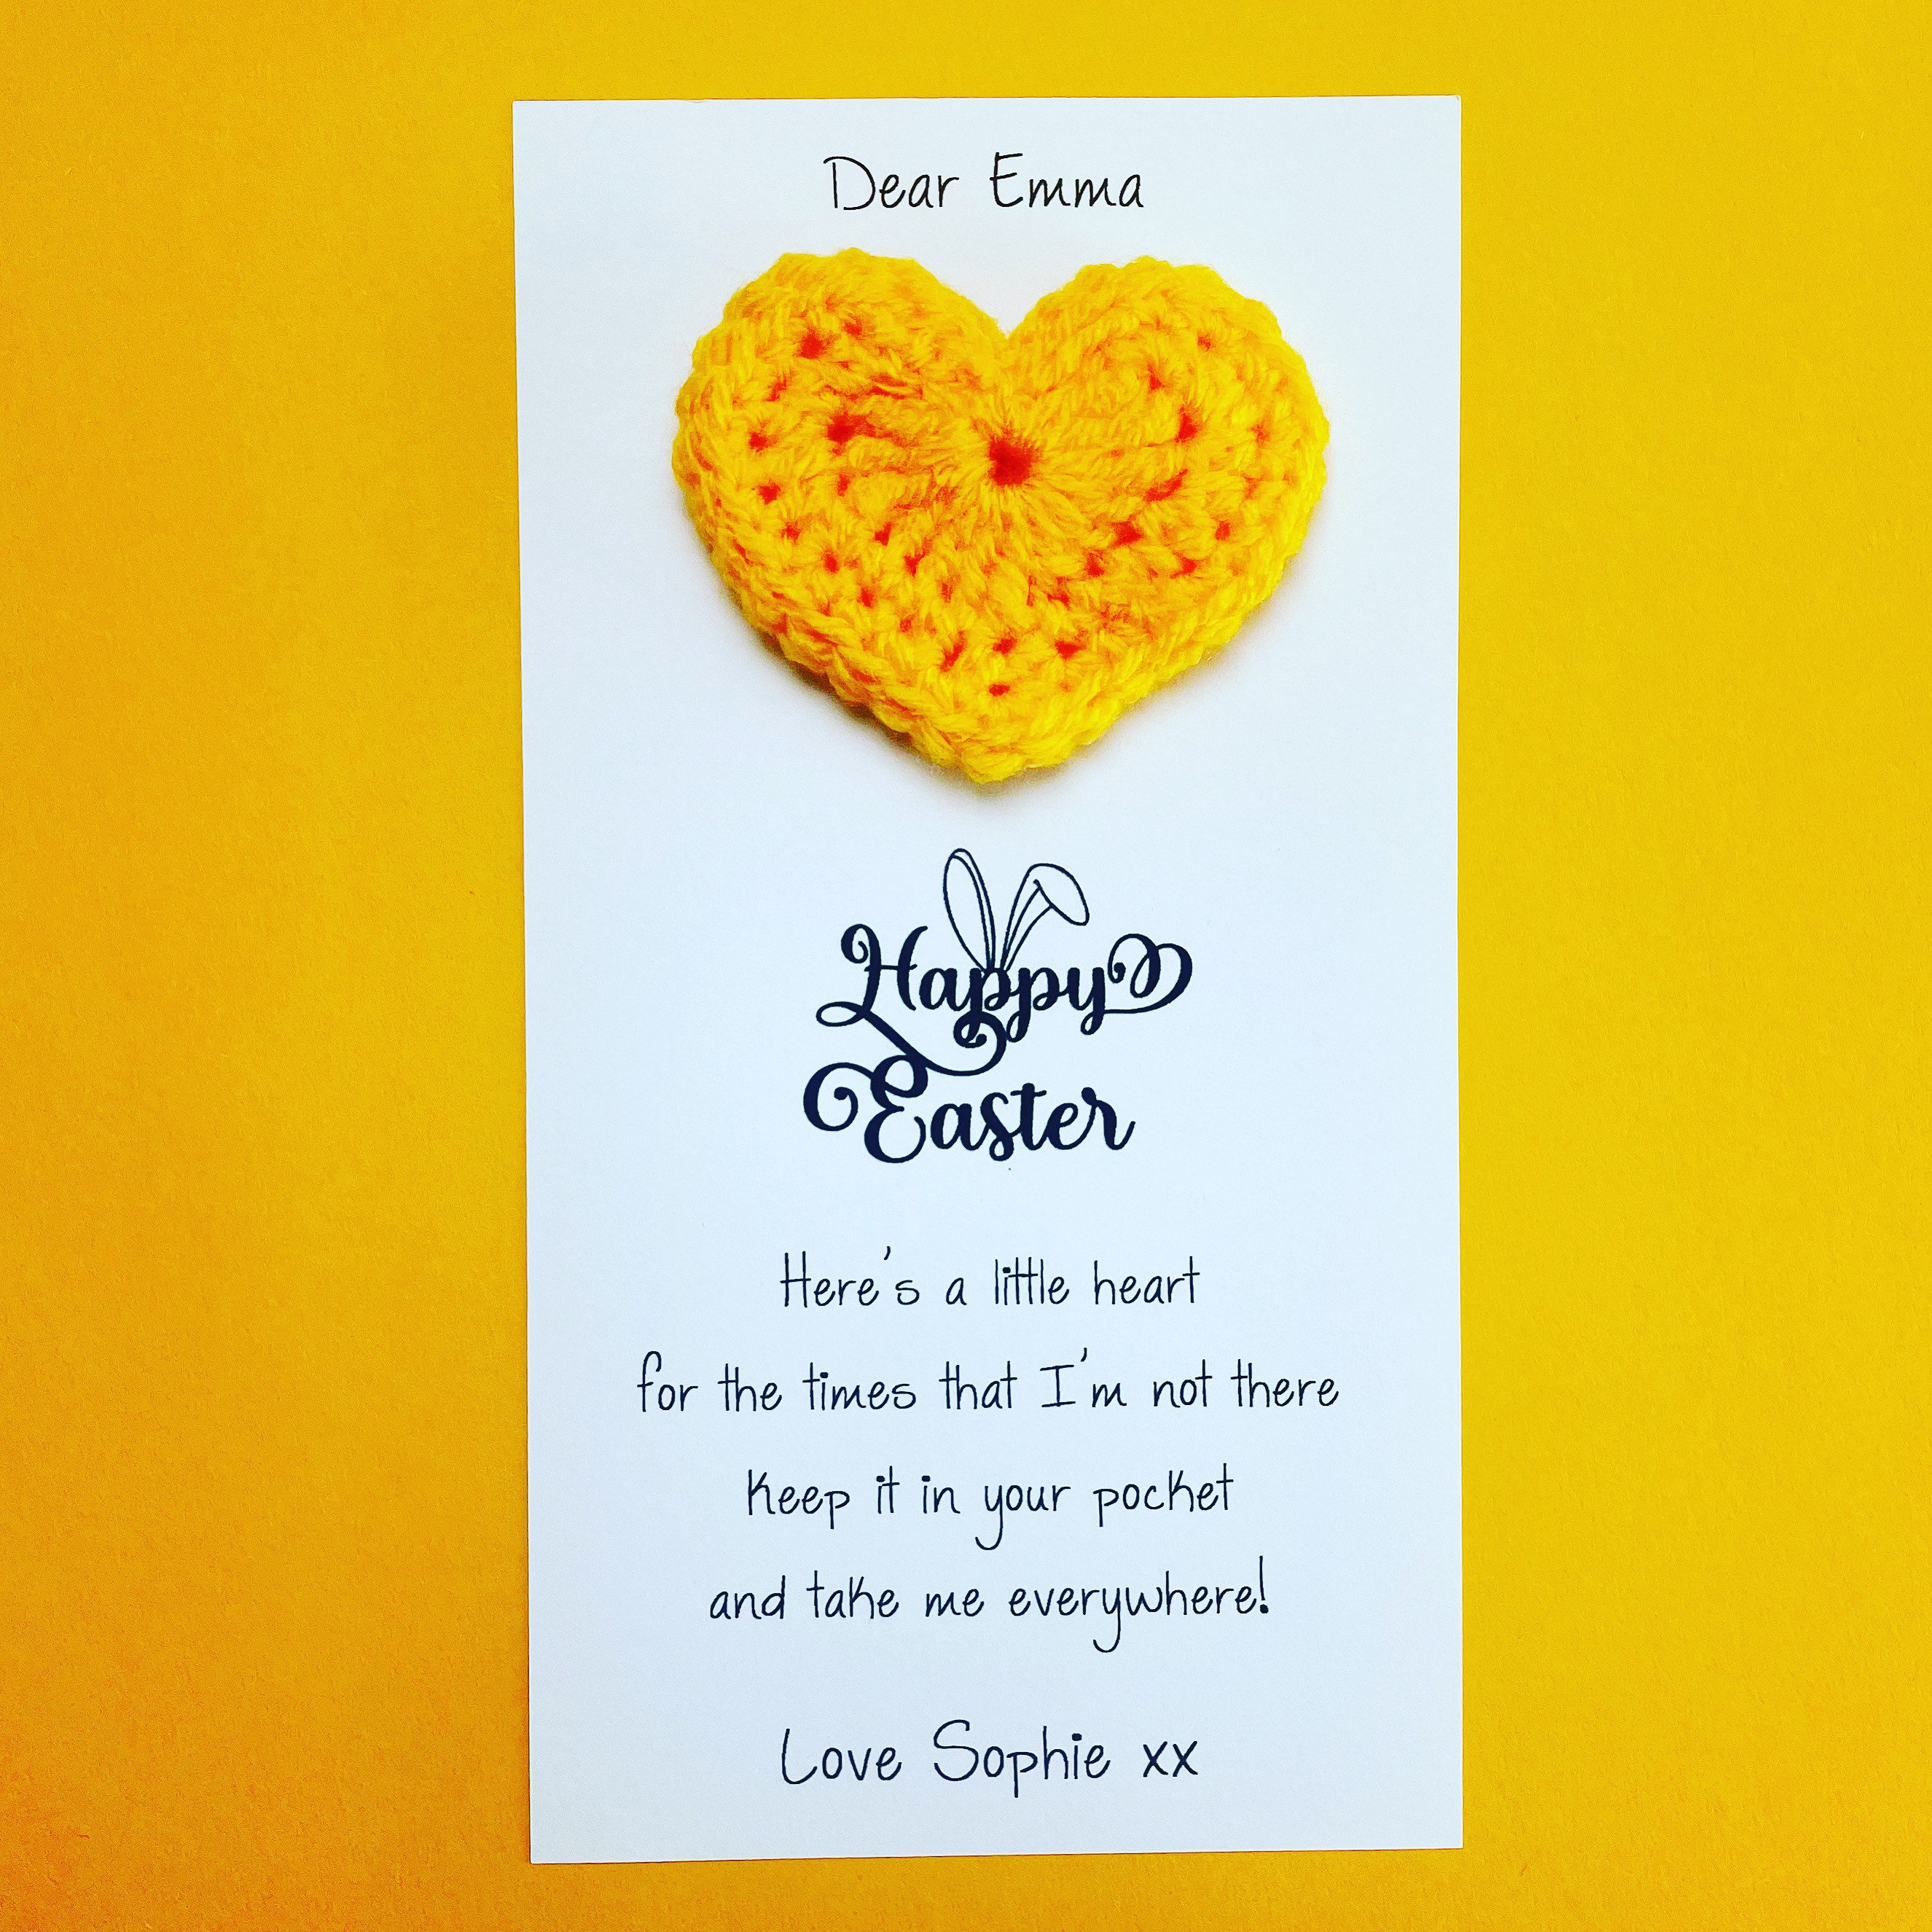 Dear Emma
Happy
Easter
Here's a little heart
for the times that I'm not there
Keep it in your pocket
and take me everywhere!
Love Sophie xx